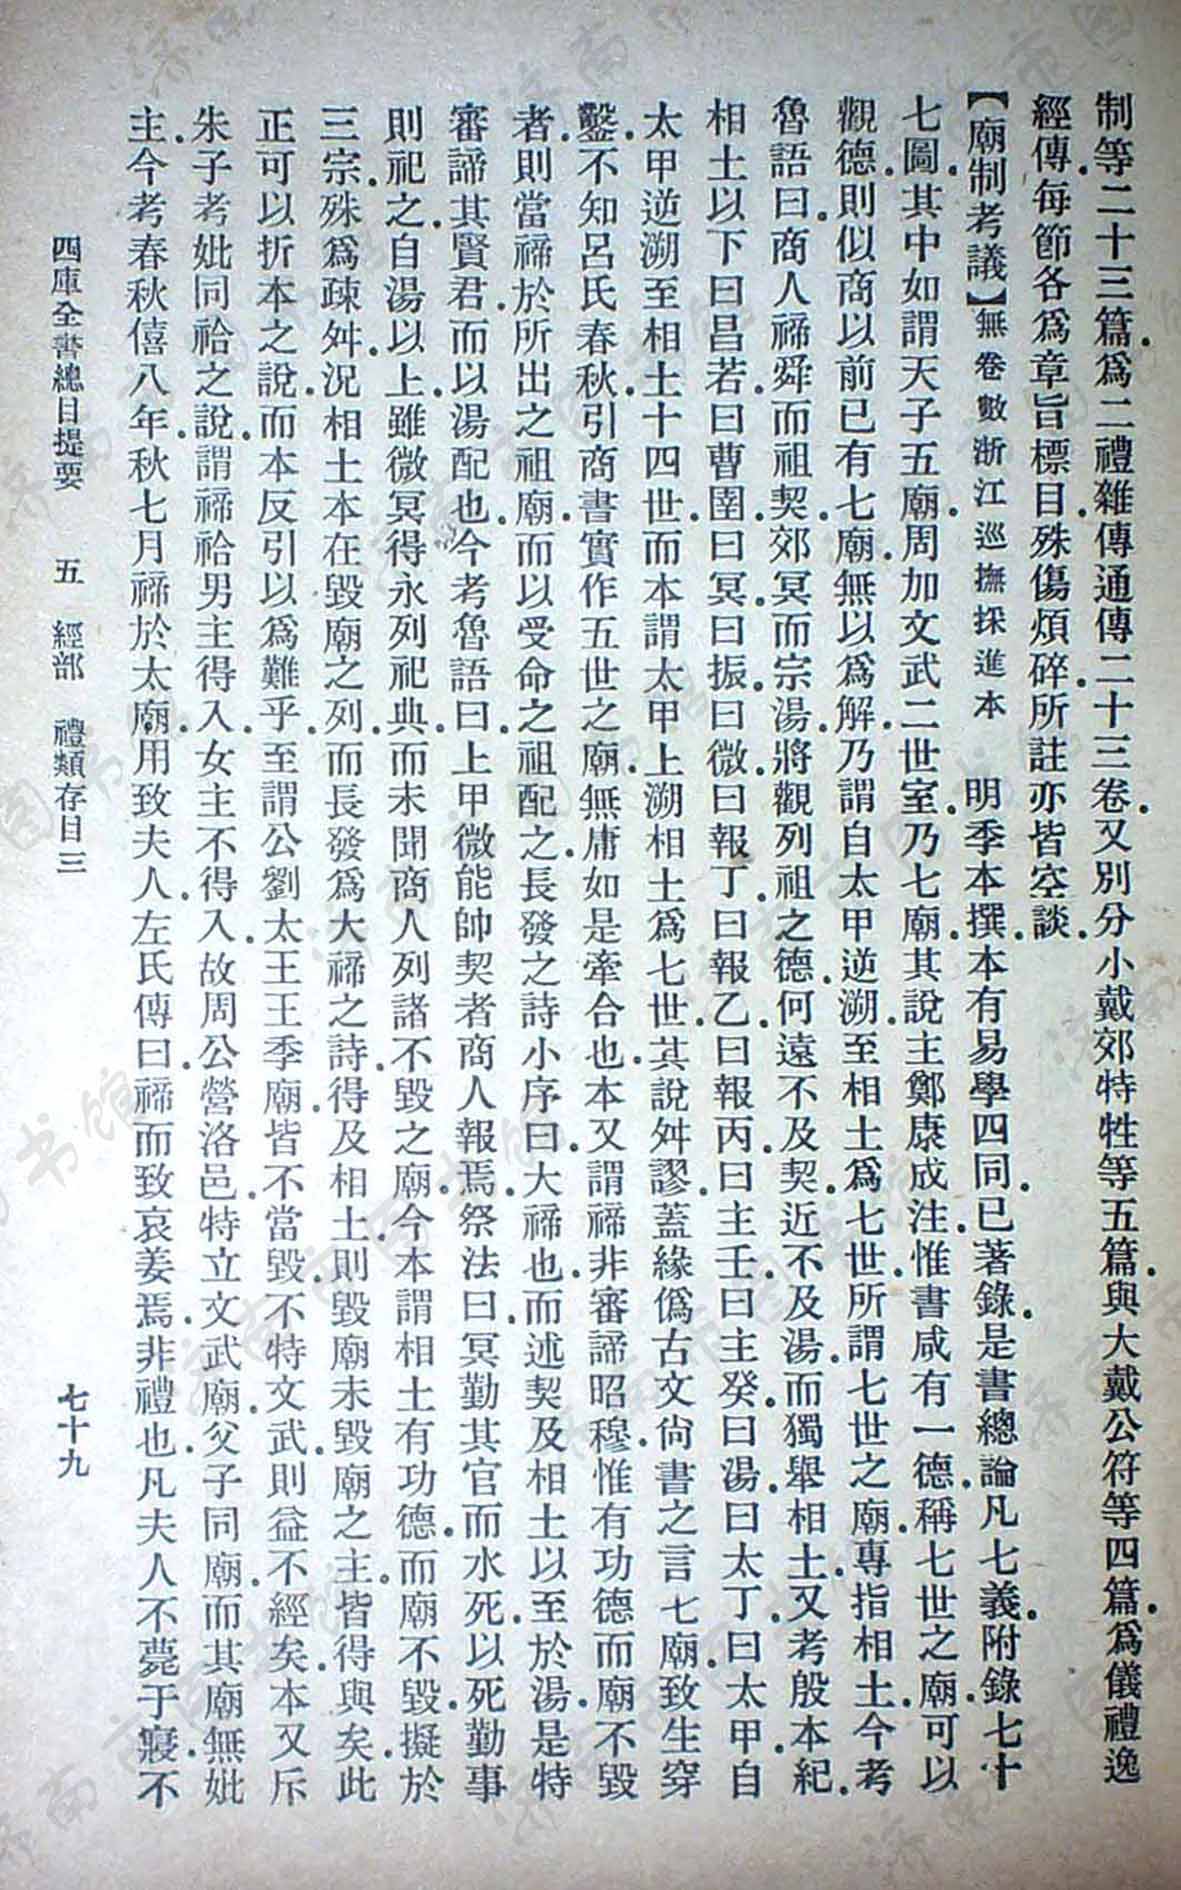 制等二十三篇爲二禮雜傳通傳二十三卷又別分小戴郊特牲等五篇與大戴公符等四篇爲儀禮逸
經傳每節各爲章旨標目殊傷煩碎所註亦皆空談
【廟制考議】無卷數浙江巡撫採進本 明季本撰本有易學四同已著錄是書總論凡七義附錄七十
七圖其中如謂天子五廟周加文武二世室乃七廟其說主鄭康成注惟書咸有一德稱七世之廟可以
觀德則似商以前已有七廟無以爲解乃謂自太甲逆溯至相土爲七世所謂七世之廟專指相土今考
魯語曰商人禘舜而祖契郊冥而宗湯將觀列祖之德何遠不及契近不及湯而獨舉相土又考殷本紀
相土以下曰昌若曰曹圉曰冥曰振曰微曰報丁曰報乙曰報丙曰主壬曰主癸曰湯曰太丁曰太甲自
太甲逆溯至相土十四世而本謂太甲上溯相土爲七世其說舛謬蓋緣僞古文尙書之言七廟致生穿
鑿不知呂氏春秋引商書實作五世之廟無庸如是牽合也本又謂禘非審諦昭穆惟有功德而廟不毀
者則當禘於所出之祖廟而以受命之祖配之長發之詩小序曰大禘也而述契及相土以至於湯是特
審諦其賢君而以湯配也今考魯語曰上甲微能帥契者商人報焉祭法曰冥勤其官而水死以死勤事
則祀之自湯以上雖微冥得永列祀典而未聞商人列諸不毀之廟今本謂相土有功德而廟不毀擬於
三宗殊爲疎舛況相土本在毀廟之列而長發爲大禘之詩得及相土則毀廟未毀廟之主皆得與矣此
正可以折本之說而本反引以爲難乎至謂公劉太王王季廟皆不當毀不特文武則益不經矣本又斥
朱子考妣同祫之說謂禘祫男主得入女主不得入故周公營洛邑特立文武廟父子同廟而其廟無妣
主今考春秋僖八年秋七月禘於太廟用致夫人左氏傳曰禘而致哀姜焉非禮也凡夫人不薨于寢不
四庫全書總目提要 五 經部 禮類存目三 七十九